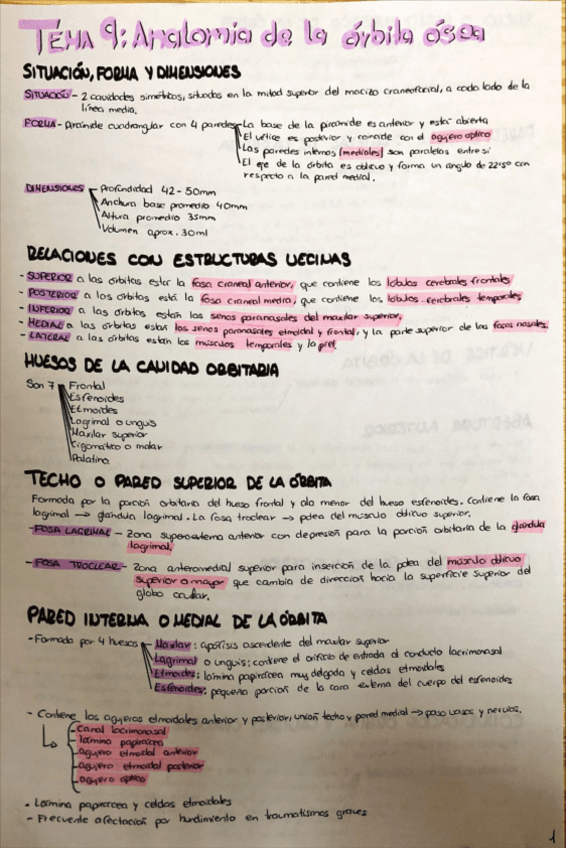 TEMA 9: Anatomía de la órbita ósea
SITUACIÓN, FORMA Y DIMENSIONES
SITUACIÓN - 2 cavidades simétricas, situadas en la mitad superior del macizo craneofacial, a cada lado de la
línea media.
FORMA - Pirámide cuadrangular con 4 paredes - La base de la pirámide es anterior y está abierta
El vértice es posterior y coincide con el agujero óptico
Las paredes internas (mediales) son paralelas entre sí
El eje de la órbita es oblicuo y forma un ángulo de 22'5º con
respecto a la pared medial.
DIMENSIONES - Profundidad 42-50mm
Anchura base promedio 40mm
Altura promedio 35mm
Volumen aprox. 30ml
RELACIONES CON ESTRUCTURAS VECINAS
- SUPERIOR a las órbitas está la fosa craneal anterior, que contiene los lóbulos cerebrales frontales
- POSTERIOR a las órbitas está la fosa craneal media, que contiene los lóbulos cerebrales temporales
- INFERIOR a las órbitas están los senos paranasales del maxilar superior,
- MEDIAL a las órbitas están los senos paranasales etmoidal y frontal, y la parte superior de las fosas nasales.
- LATERAL a las órbitas están los músculos temporales y la piel
HUESOS DE LA CAVIDAD ORBITARIA
Son 7 Frontal
Esfenoides
Etmoides
Lagrimal o unguis
Maxilar superior
Cigomático o malar
Palatino
TECHO O PARED SUPERIOR DE LA ÓRBITA
Formada por la porción orbitaria del hueso frontal y ala menor del hueso esfenoides. Contiene la fosa
lagrimal → glándula lagrimal. La fosa troclear → polea del músculo oblicuo superior.
- FOSA LAGRIMAL - Zona superoexterna anterior con depresión para la porción orbitaria de la glándula
lagrimal.
- FOSA TROCLEAR - Zona anteromedial superior para inserción de la polea del músculo oblicuo
superior o mayor que cambia de dirección hacia la superficie superior del
globo ocular.
PARED INTERNA O MEDIAL DE LA ÓRBITA
- Formada por 4 huesos - Maxilar: apófisis ascendente del maxilar superior
Lagrimal o unguis: contiene el orificio de entrada al conducto lacrimonasal
Etmoides: lámina papirácea muy delgada y celdas etmoidales
Esfenoides: pequeña porción de la cara externa del cuerpo del esfenoides
- Contiene los agujeros etmoidales anterior y posterior, unión techo y pared medial → paso vasos y nervios.
- Canal lacrimonasal
- lámina papirácea
- agujero etmoidal anterior
- agujero etmoidal posterior
- agujero óptico
• Lámina papirácea y celdas etmoidales
- Frecuente afectación por hundimiento en traumatismos graves
1